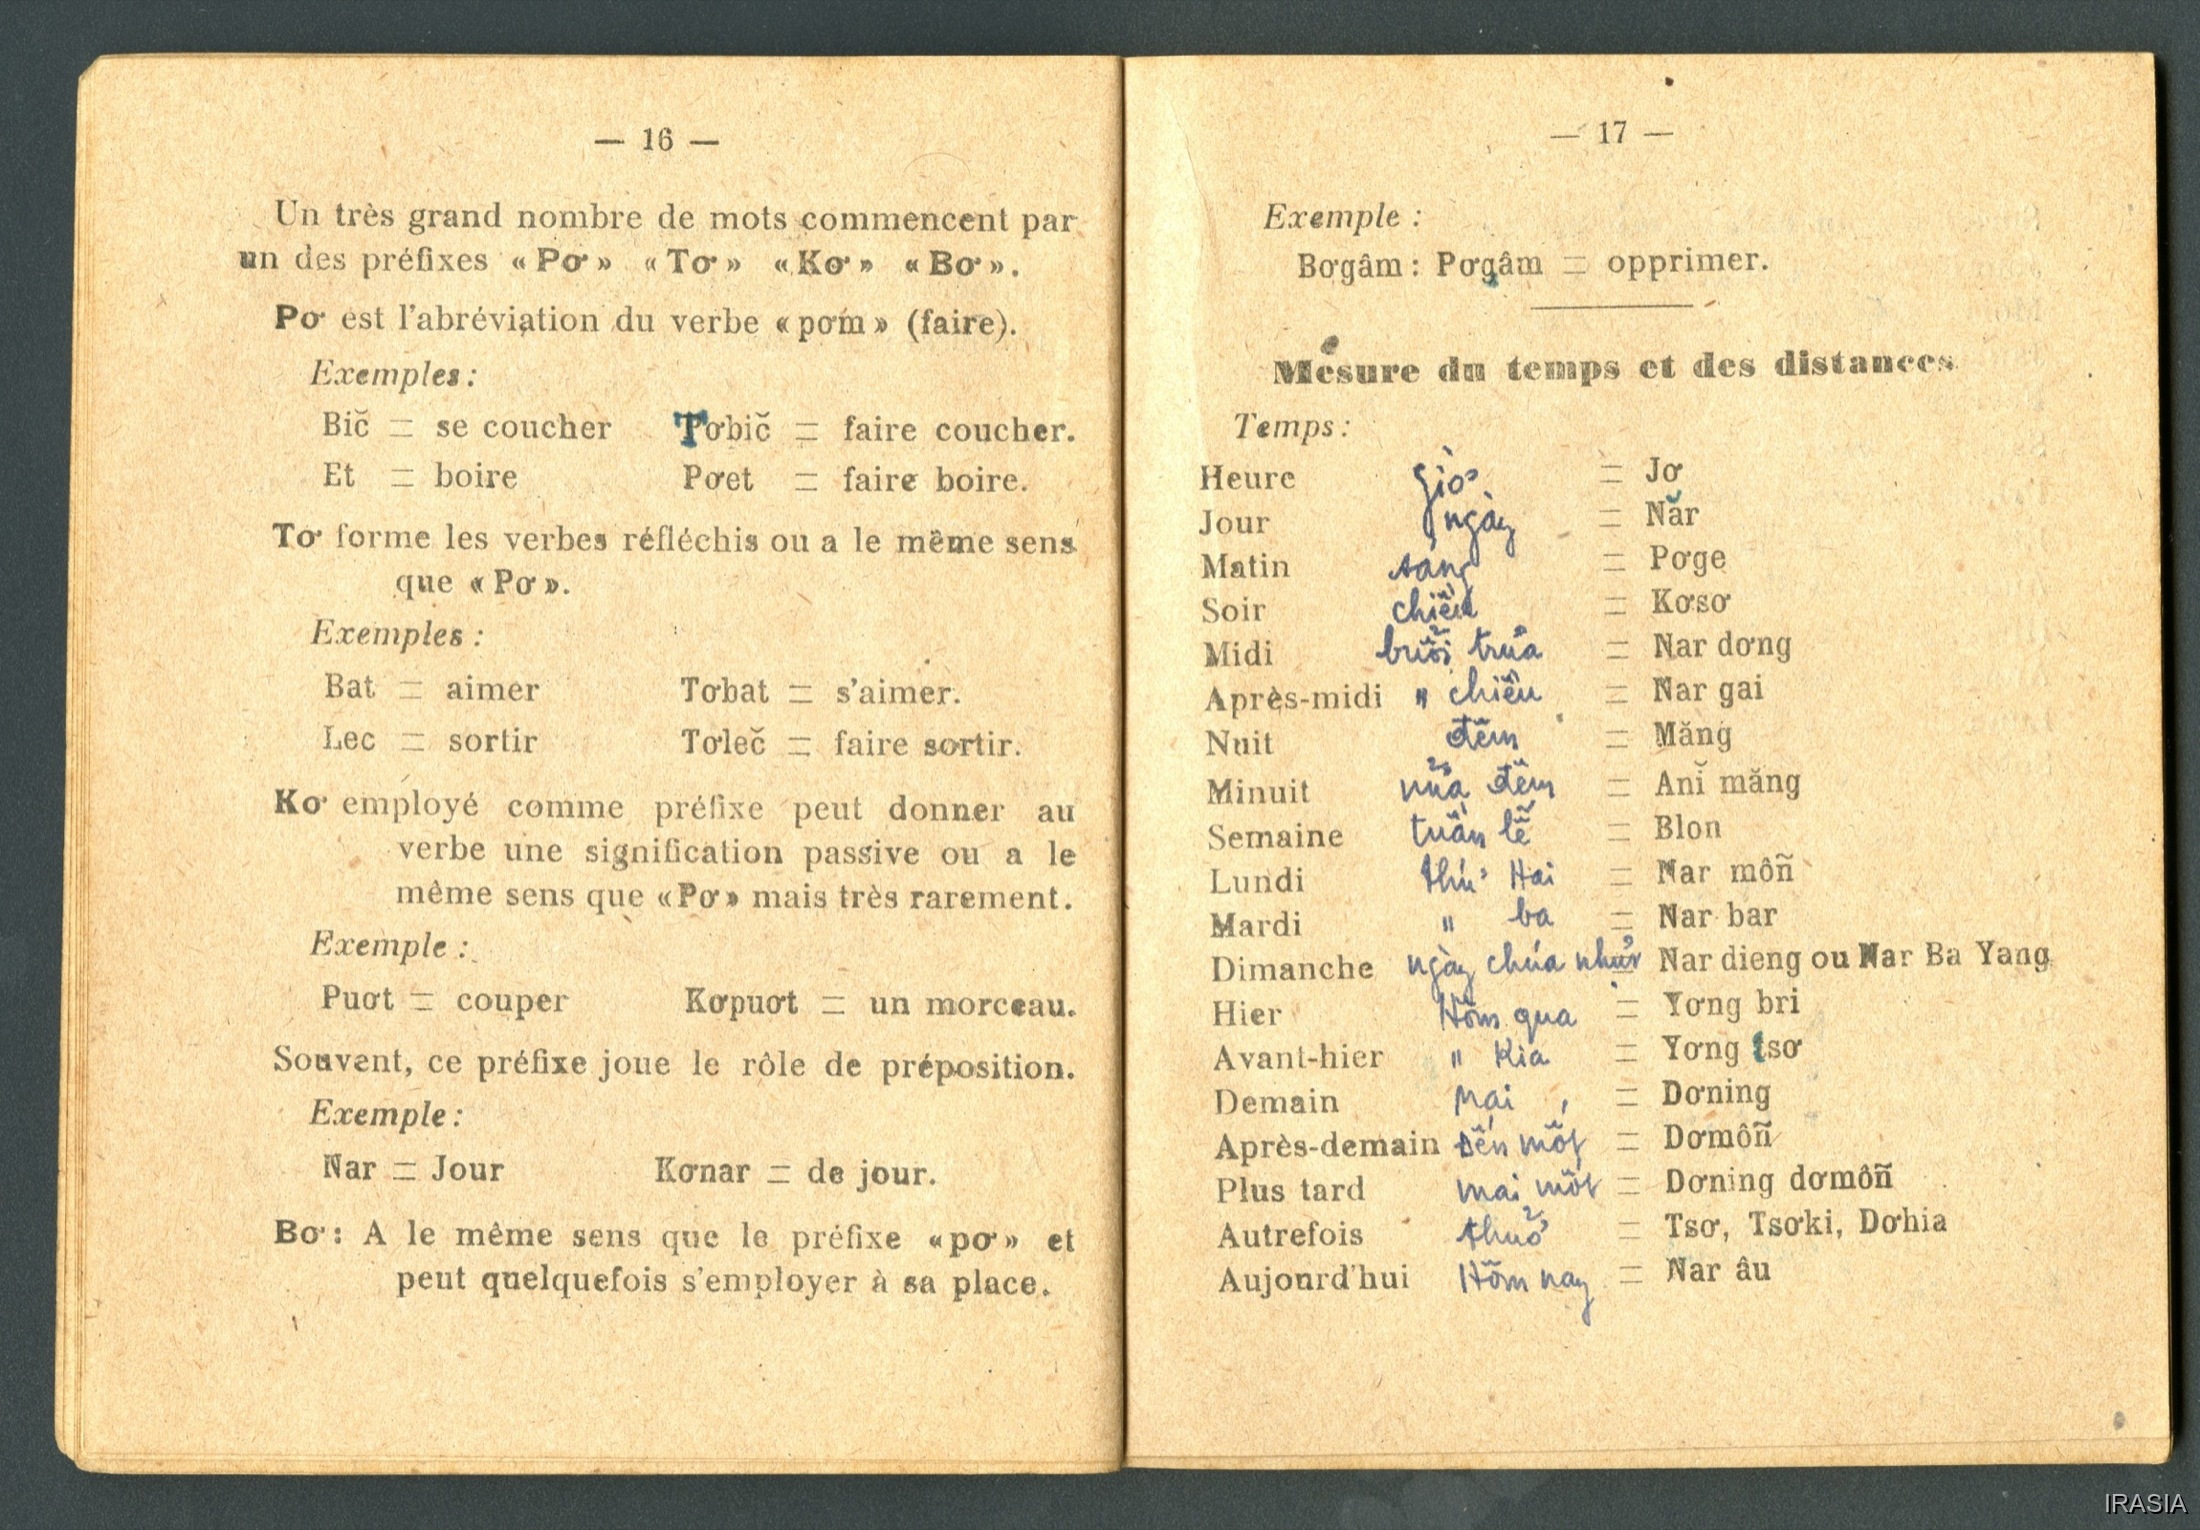 — 16 —
Un très grand nombre de mots commencent par
un des préfixes « Pơ » « Tơ » « Kơ » « Bơ ».
Pơ est l'abréviation du verbe « pơm » (faire).
Exemples :
Bič̆ = se coucher Tơbič̆ = faire coucher.
Et = boire Pơet = faire boire.
Tơ forme les verbes réfléchis ou a le même sens
que « Pơ ».
Exemples :
Bat = aimer Tơbat = s'aimer.
Lec = sortir Tơlec̆ = faire sortir.
Kơ employé comme préfixe peut donner au
verbe une signification passive ou a le
même sens que « Pơ » mais très rarement.
Exemple :
Puơt = couper Kơpuơt = un morceau.
Souvent, ce préfixe joue le rôle de préposition.
Exemple :
Nar = Jour Kơnar = de jour.
Bơ : A le même sens que le préfixe « pơ » et
peut quelquefois s'employer à sa place.
— 17 —
Exemple :
Bơgâm : Pơgâm = opprimer.
Mesure du temps et des distances
Temps :
Heure giờ = Jơ
Jour ngày = Năr
Matin sáng = Pơge
Soir chiều = Kơsơ
Midi buổi trưa = Nar dơng
Après-midi " chiều = Nar gai
Nuit đêm = Măng
Minuit nửa đêm = Anĭ măng
Semaine tuần lễ = Blon
Lundi thứ Hai = Nar môñ
Mardi " ba = Nar bar
Dimanche ngày chúa nhựt = Nar dieng ou Nar Ba Yang
Hier Hôm qua = Yơng bri
Avant-hier " Kia = Yơng tsơ
Demain Mai = Dơning
Après-demain Đến mốt = Dơmôñ
Plus tard mai mốt = Dơning dơmôñ
Autrefois thuở = Tsơ, Tsơki, Dơhia
Aujourd'hui Hôm nay = Nar âu
IRASIA